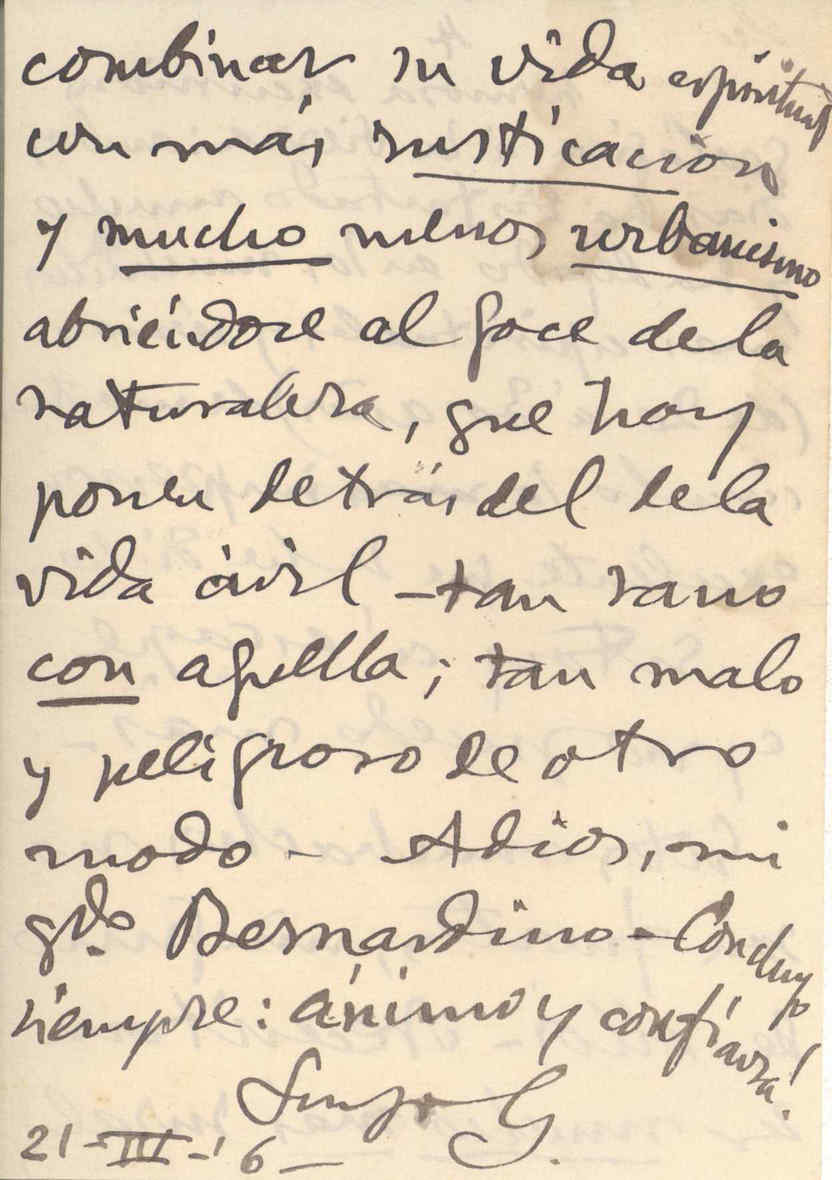 combinar su vida espiritual
con más rusticación
y mucho menos urbanismo
abriéndose al goce de la
naturaleza, que hay
poner detrás del de la
vida civil - tan sano
con aquella; tan malo
y peligroso de otro
modo - Adios, mi
qdo. Bernardino - Concluyo
siempre: ánimo y confianza!
Suyo G.
21-III-'6-